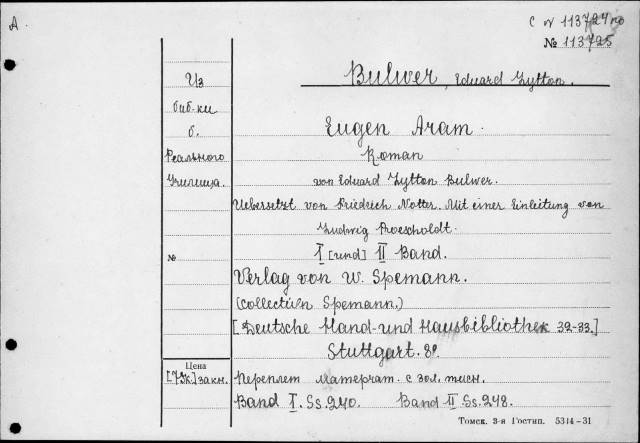 А
С № 113724 по
№ 113725
Bulwer, Eduard Lytton.
Из
биб-ки
б.
Реального
Училища.
Eugen Aram.
Roman
von Eduard Lytton Bulwer.
Uebersetzt von Friedrich Notter. Mit einer Einleitung von
Ludwig Proescholdt.
№
I [und] II Band.
Verlag von W. Spemann.
(Collection Spemann.)
[Deutsche Hand- und Hausbibliothek 32-33.]
Stuttgart. 8º.
Цена
закн. Переплет матерчат. с зол. тисн.
Band I. Ss. 240. Band II Ss. 248.
Томск. 3-я Гостип. 5314-31